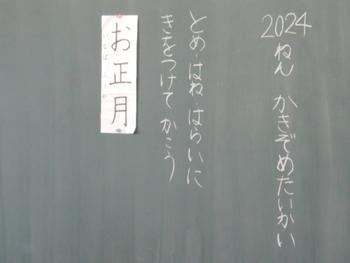 2024ねん かきぞめたいかい
とめ はね はらいに
きをつけて かこう
お正月